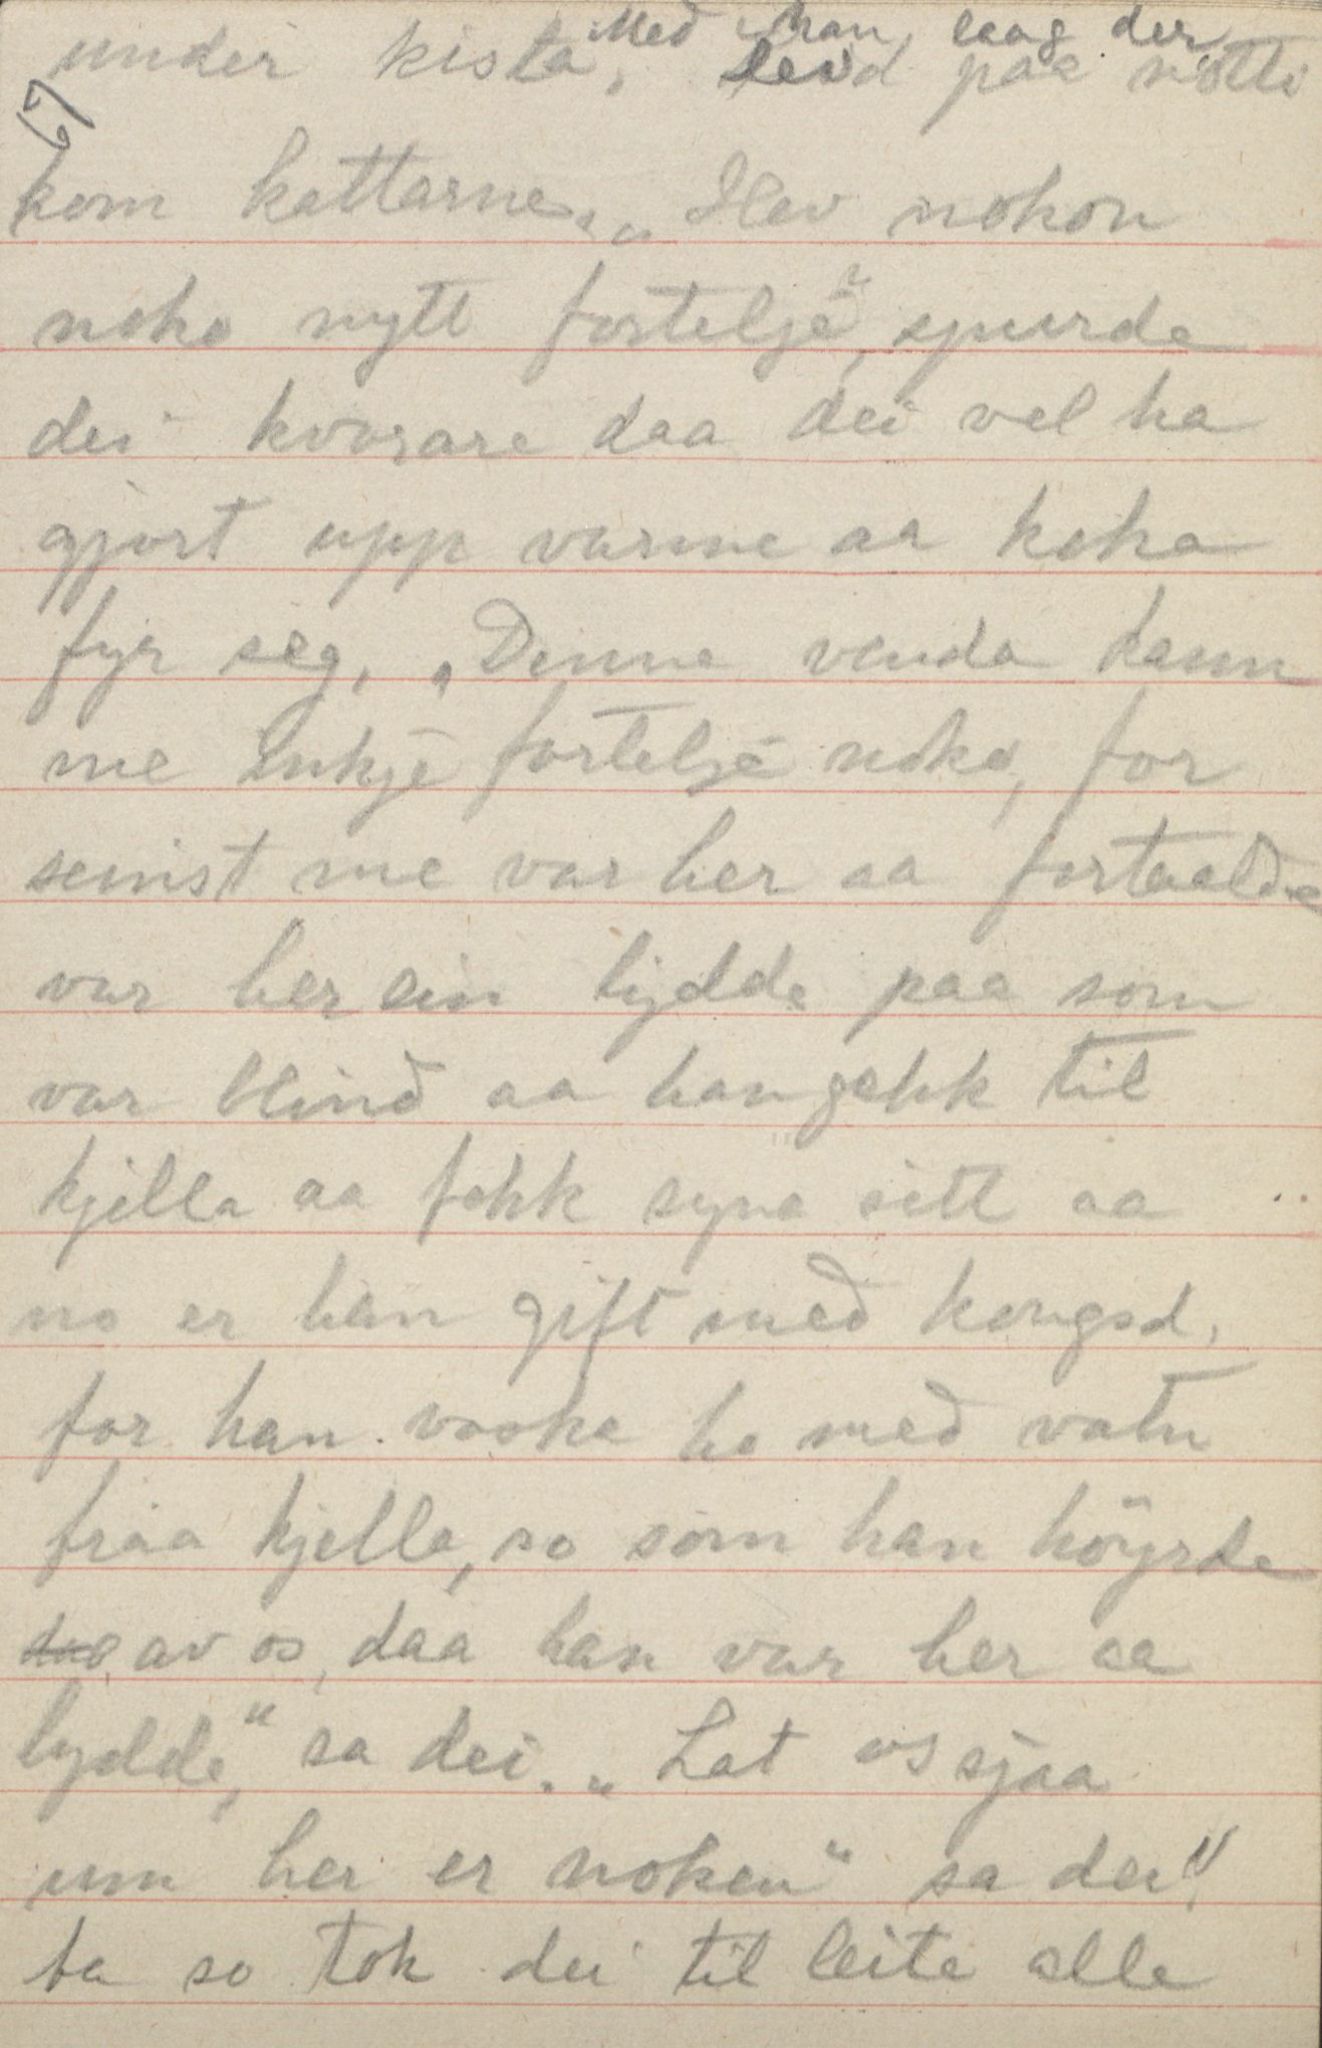 under kista, Med han laag der
leid paa notti
67
kom kattarne. „Hev nokon
noko nytt fortelje", spurde
dei kvorare daa dei vel ha
gjort upp varme aa koka
fyr seg. „Denne venda kann
me inkje fortelje noko, for
seinst me var her aa fortaalde
var her ein lydde paa som
var blind aa han gekk til
kjella aa fekk syna sitt aa
no er han gift med kongsd.
for han vaska ho med vatn
fraa kjella, so som han höyrde
av os, daa han var her aa
lydde," sa dei. „Lat os sjaa
um her er noken" sa dei"
ta so tok dei til leite alle